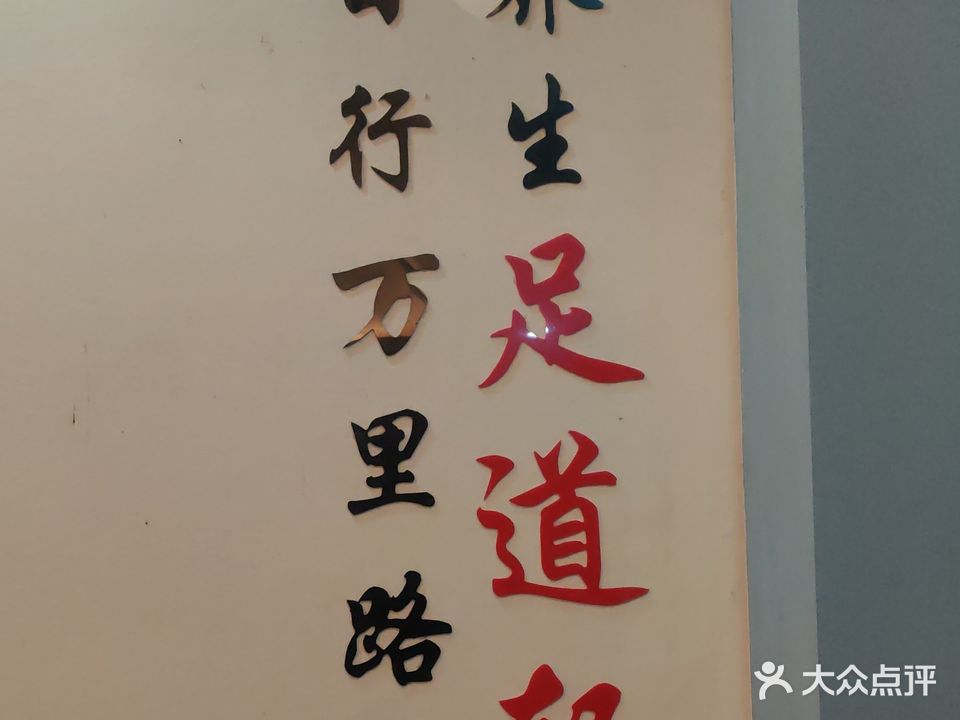 养生足道
行万里路
大众点评